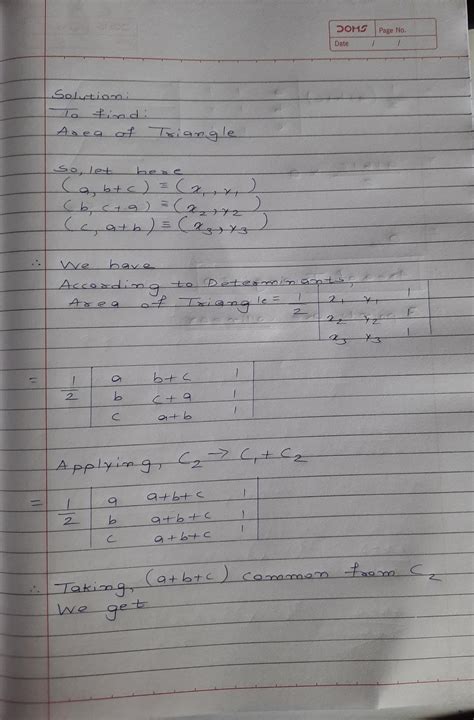 DOMS Page No.
Date / /
Solution:
To find:
Area of Triangle
So, let here
(a, b+c) ≡ (x₁, y₁)
(b, c+a) ≡ (x₂, y₂)
(c, a+b) ≡ (x₃, y₃)
∴ We have
According to Determinants,
Area of Triangle = 1/2 | x₁ y₁ 1
x₂ y₂ 1
x₃ y₃ 1 |
= 1/2 | a b+c 1
b c+a 1
c a+b 1 |
Applying, C₂ → C₁ + C₂
= 1/2 | a a+b+c 1
b a+b+c 1
c a+b+c 1 |
∴ Taking, (a+b+c) common from C₂
We get